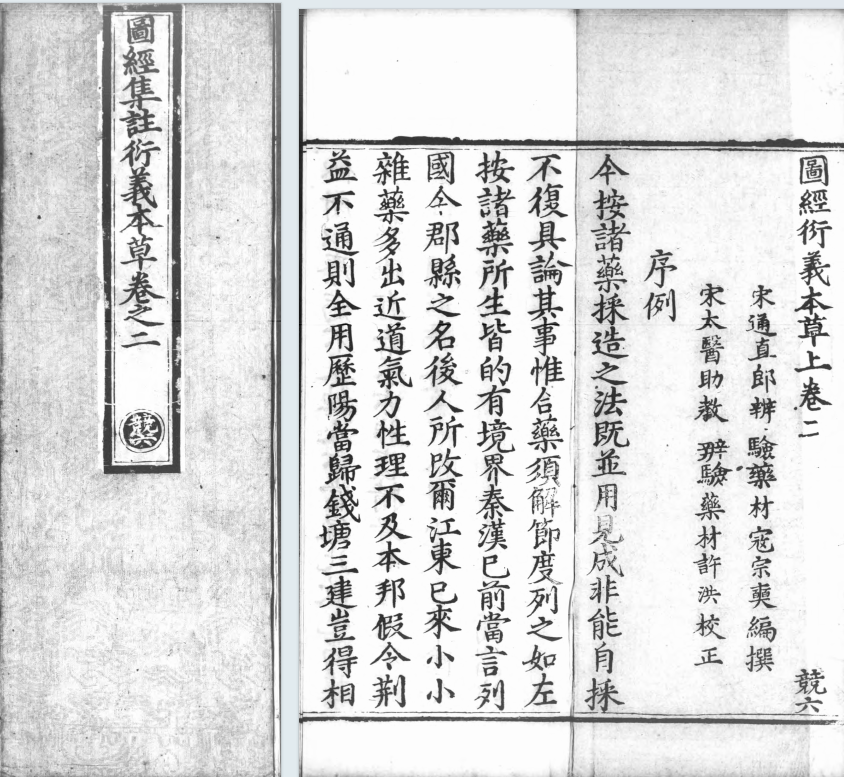 圖經集註衍義本草卷之二
競六
圖經衍義本草上卷二
競六
宋通直郎辨驗藥材寇宗奭編撰
宋太醫助教辨驗藥材許洪校正
序例
今按諸藥採造之法既並用見成非能自採
不復具論其事惟合藥須解節度列之如左
按諸藥所生皆的有境界秦漢已前當言列
國今郡縣之名後人所改爾江東已來小小
雜藥多出近道氣力性理不及本邦假令荆
益不通則全用歷陽當歸錢塘三建豈得相